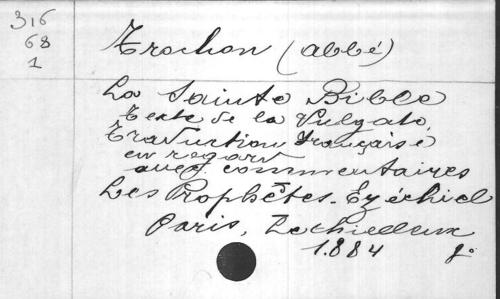 316
68
1
Trochon (abbé)
La Sainte Bible
Texte de la Vulgate,
Traduction française
en regard
avec commentaires
Les Prophètes - Ezéchiel
Paris, Lethielleux
1.884 8°